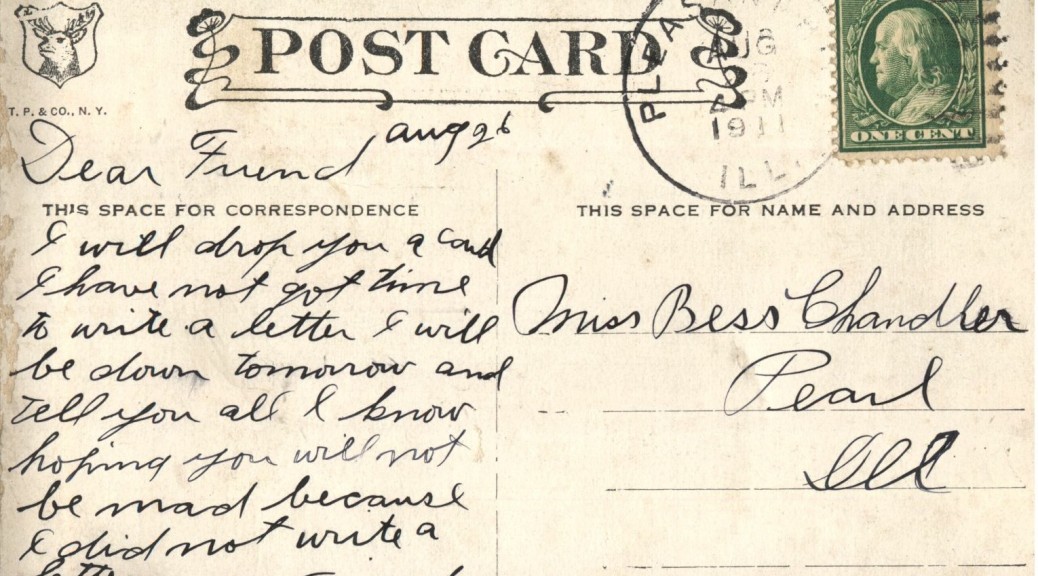 POST CARD
T. P. & CO., N. Y.
PLEAS
AUG
PM
1911
ILL.
ONE CENT
aug 26
Dear Friend
THIS SPACE FOR CORRESPONDENCE
I will drop you a card
I have not got time
to write a letter I will
be down tomorrow and
tell you all I know
hoping you will not
be mad because
I did not write a
THIS SPACE FOR NAME AND ADDRESS
Miss Bess Chandler
Pearl
Ill